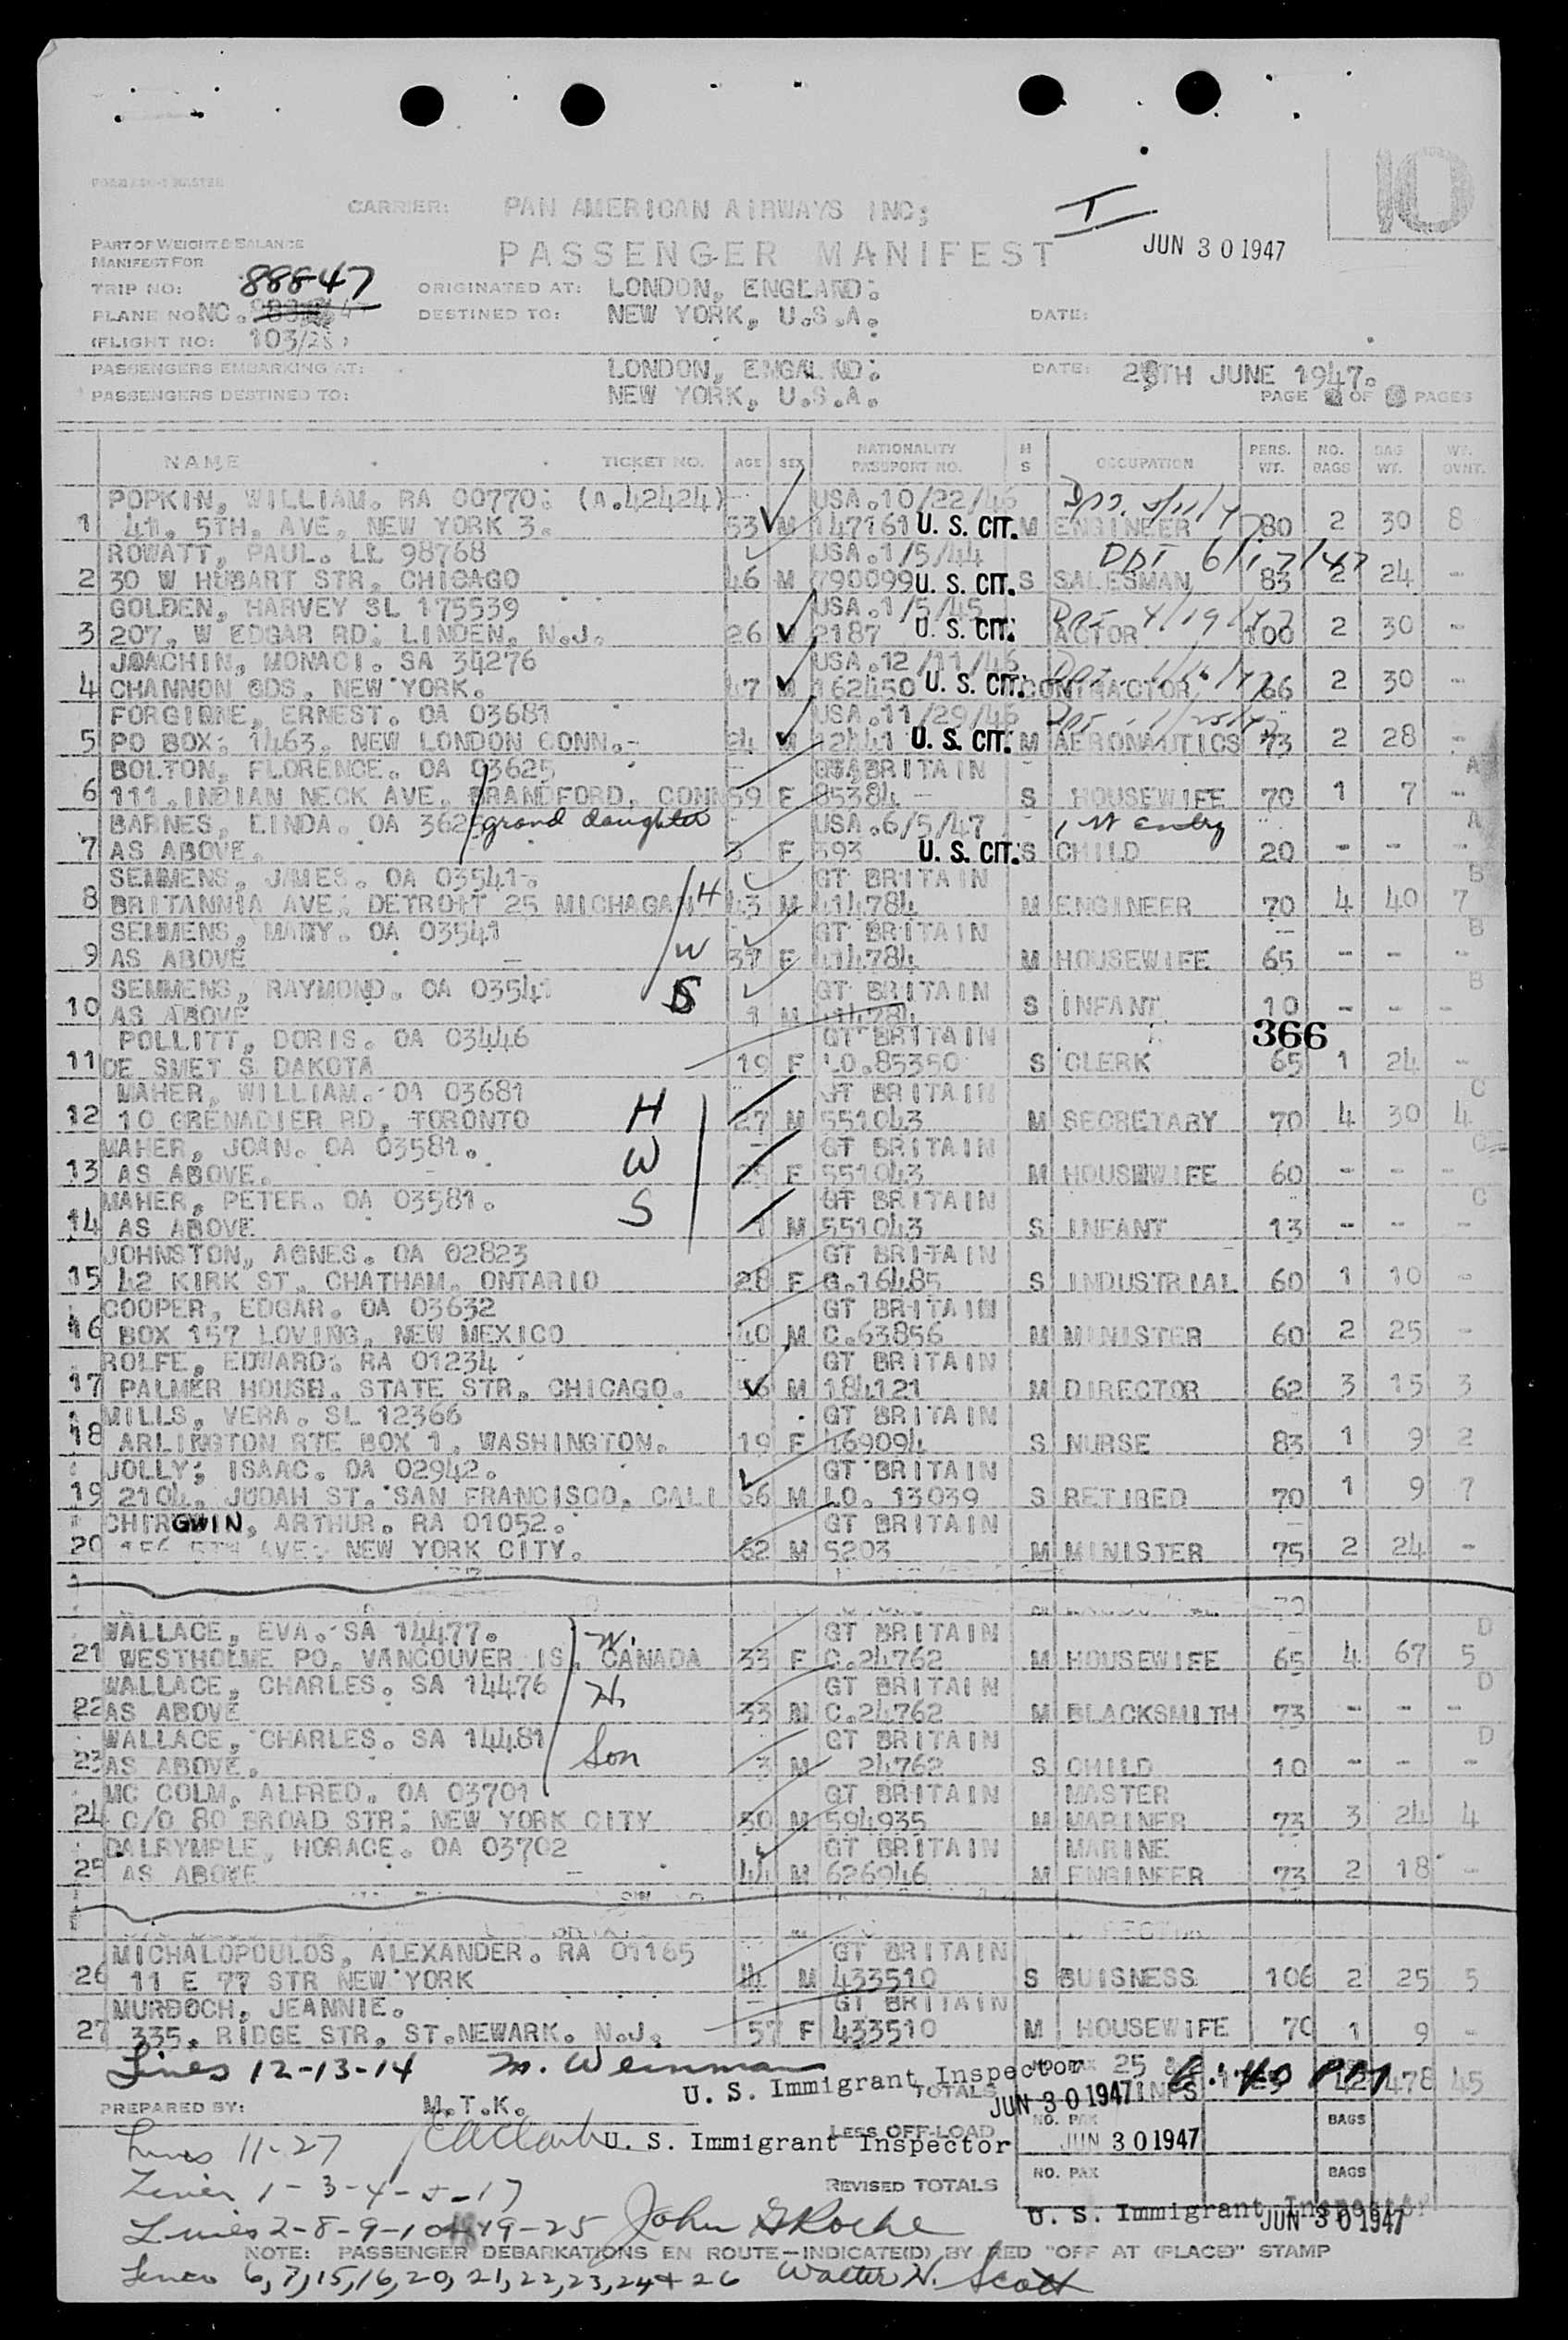 FORM MASTER
10
CARRIER: PAN AMERICAN AIRWAYS INC;
I
PART OF WEIGHT & BALANCE
MANIFEST FOR
PASSENGER MANIFEST
JUN 30 1947
TRIP NO: 88847 ORIGINATED AT: LONDON, ENGLAND:
PLANE NO NC. DESTINED TO: NEW YORK, U.S.A. DATE:
(FLIGHT NO: 103/28)
PASSENGERS EMBARKING AT: LONDON, ENGALND: DATE: 28TH JUNE 1947.
PASSENGERS DESTINED TO: NEW YORK, U.S.A. PAGE OF PAGES
NAME TICKET NO. AGE SEX NATIONALITY PASSPORT NO. M S OCCUPATION PERS. WT. NO. BAGS BAG WT. WT. OVNT.
POPKIN, WILLIAM. RA 00770: (A.42424) USA.10/22/46
1 41. 5TH. AVE, NEW YORK 3. 53 M 147161 U. S. CIT. M ENGINEER 80 2 30 8
ROWATT, PAUL. LL 98768 USA.1/5/44 6/17/47
2 30 W HUBART STR, CHICAGO 46 M 790099 U. S. CIT. S SALESMAN 83 2 24 -
GOLDEN, HARVEY SL 175539 USA.1/5/45 4/19/47
3 207, W EDGAR RD: LINDEN, N.J. 26 M 2187 U. S. CIT. ACTOR 100 2 30 -
JOACHIN, MONACI. SA 34276 USA.12/11/46
4 CHANNON GDS. NEW YORK. 47 M 162450 U. S. CIT. CONTRACTOR 66 2 30 -
FORGIONE, ERNEST. OA 03681 USA.11/29/46
5 PO BOX: 1463. NEW LONDON CONN.- 24 M 12441 U. S. CIT. M AERONAUTICS 73 2 28 -
BOLTON, FLORENCE. OA 03625 GT BRITAIN A
6 111.INDIAN NECK AVE, BRANDFORD, CONN 59 F 85384 - S HOUSEWIFE 70 1 7 -
BARNES, LINDA. OA 3625 grand daughter USA.6/5/47 1st entry A
7 AS ABOVE. 3 F 593 U. S. CIT. S CHILD 20 - - -
SEMMENS, JAMES. OA 03541. GT BRITAIN B
8 BRITANNIA AVE: DETROIT 25 MICHAGAN H 43 M 414784 M ENGINEER 70 4 40 7
SEMMENS, MARY. OA 03541 GT BRITAIN B
9 AS ABOVE W 37 F 414784 M HOUSEWIFE 65 - - -
SEMMENS, RAYMOND. OA 03541 S GT BRITAIN B
10 AS ABOVE 1 M 414784 S INFANT 10 - - -
366
POLLITT, DORIS. OA 03446 GT BRITAIN
11 DE SMET S DAKOTA 19 F LO.85350 S CLERK 65 1 24 -
MAHER, WILLIAM. OA 03681 GT BRITAIN C
12 10 GRENADIER RD, TORONTO H 27 M 551043 M SECRETARY 70 4 30 4
MAHER, JOAN. OA 03581. GT BRITAIN C
13 AS ABOVE. W 25 F 551043 M HOUSEWIFE 60 - - -
MAHER, PETER. OA 03581. GT BRITAIN C
14 AS ABOVE S 1 M 551043 S INFANT 13 - - -
JOHNSTON, AGNES. OA 02823 GT BRITAIN
15 42 KIRK ST, CHATHAM. ONTARIO 28 F G.16485 S INDUSTRIAL 60 1 10 -
COOPER, EDGAR. OA 03632 GT BRITAIN
16 BOX 157 LOVING, NEW MEXICO 40 M C.63856 M MINISTER 60 2 25 -
ROLFE, EDWARD. RA 01234 GT BRITAIN
17 PALMER HOUSE. STATE STR, CHICAGO. 56 M 184121 M DIRECTOR 62 3 15 3
MILLS, VERA. SL 12366 GT BRITAIN
18 ARLINGTON RTE BOX 1, WASHINGTON. 19 F 469094 S NURSE 83 1 9 2
JOLLY; ISAAC. OA 02942. GT BRITAIN
19 2104, JUDAH ST. SAN FRANCISCO, CALI 66 M LO. 13039 S RETIRED 70 1 9 7
CHIRGWIN, ARTHUR. RA 01052. GT BRITAIN
20 156 5TH AVE: NEW YORK CITY. 62 M 5203 M MINISTER 75 2 24 -
WALLACE, EVA. SA 14477. W. GT BRITAIN D
21 WESTHOLME PO. VANCOUVER IS, CANADA 33 F C.24762 M HOUSEWIFE 65 4 67 5
WALLACE, CHARLES. SA 14476 H. GT BRITAIN D
22 AS ABOVE 33 M C.24762 M BLACKSMITH 73 - - -
WALLACE, CHARLES. SA 14481 Son GT BRITAIN D
23 AS ABOVE. 3 M 24762 S CHILD 10 - - -
MC COLM, ALFRED. OA 03701 GT BRITAIN MASTER
24 C/O 80 BROAD STR: NEW YORK CITY 50 M 594935 M MARINER 73 3 24 4
DALRYMPLE, HORACE. OA 03702 GT BRITAIN MARINE
25 AS ABOVE 44 M 626946 M ENGINEER 73 2 18 -
MICHALOPOULOS, ALEXANDER. RA 01165 GT BRITAIN
26 11 E 77 STR NEW YORK 44 M 433510 S BUISNESS 106 2 25 5
MURDOCH, JEANNIE. GT BRITAIN
27 335, RIDGE STR, ST.NEWARK. N.J. 57 F 433510 M HOUSEWIFE 70 1 9 -
Lines 12-13-14 M. Weinman U. S. Immigrant Inspector TOTALS NO. PAX 25 & 2 INFS 6:40 PM 42 478 45
JUN 30 1947
PREPARED BY: M.T.K. LESS OFF-LOAD NO. PAX BAGS
Lines 11-27 U. S. Immigrant Inspector JUN 30 1947
Lines 1-3-4-5-17 REVISED TOTALS NO. PAX BAGS
Lines 2-8-9-10-18-19-25 John G Roche U. S. Immigrant Inspector JUN 30 1947
NOTE: PASSENGER DEBARKATIONS EN ROUTE-INDICATE(D) BY RED "OFF AT (PLACE)" STAMP
Lines 6,7,15,16,20,21,22,23,24+26 Walter H. Scott